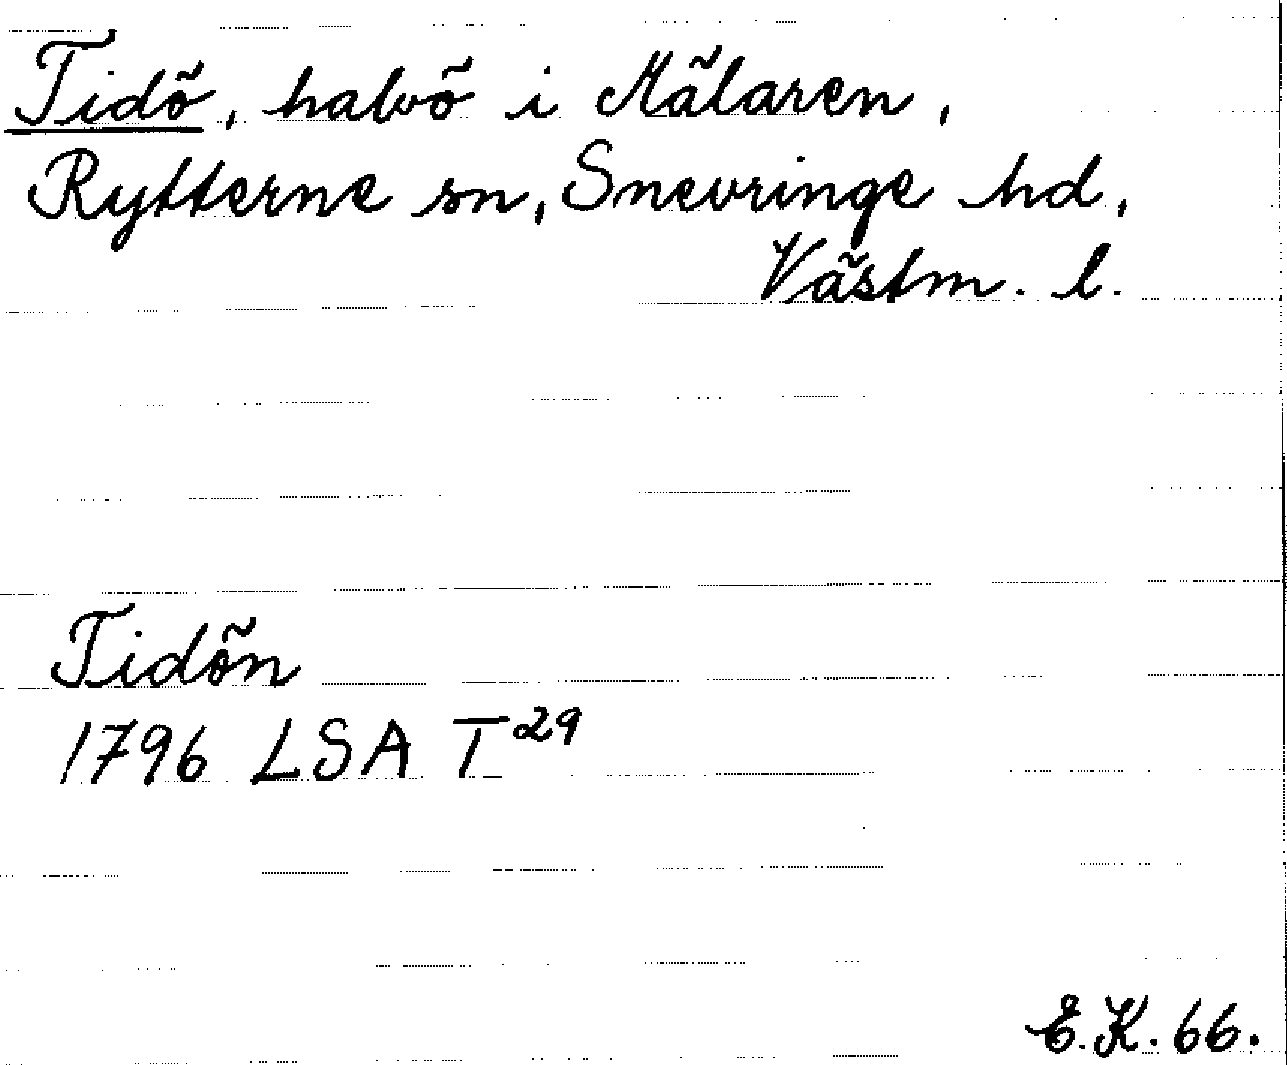 Tidö, halvö i Mälaren,
Rytterne sn, Snevringe hd,
Västm. l.
Tidön
1796 LSA T²⁹
E.K. 66.